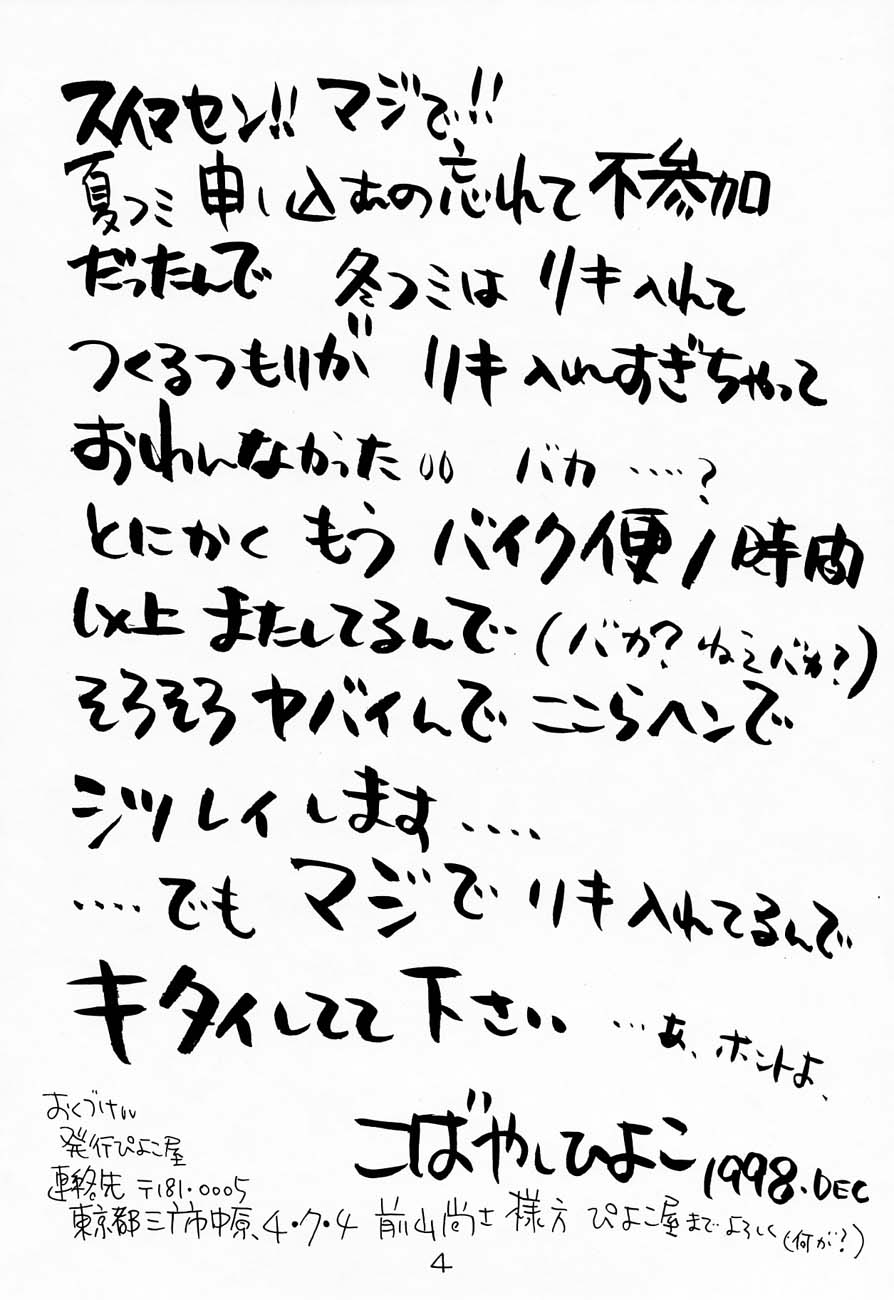 スイマセン!! マジで!!
夏コミ 申し込むの忘れて 不参加
だったんで 冬コミは リキ入れて
つくるつもりが リキ入れすぎちゃって
おわんなかった バカ ‥‥?
とにかく もう バイク便 1時間
以上 またしてるんで (バカ? ねぇバカ?)
そろそろ ヤバイんで ここらヘンで
シツレイします ‥‥
‥‥でも マジで リキ入れてるんで
キタイしてて 下さい …あ、ホントよ、
おくづけ
発行ぴよこ屋
連絡先 〒181・0005
こばやしひよこ 1998.DEC
東京都三鷹市中原、4・7・4 前山尚士 様方 ぴよこ屋まで よろしく (何が?)
4